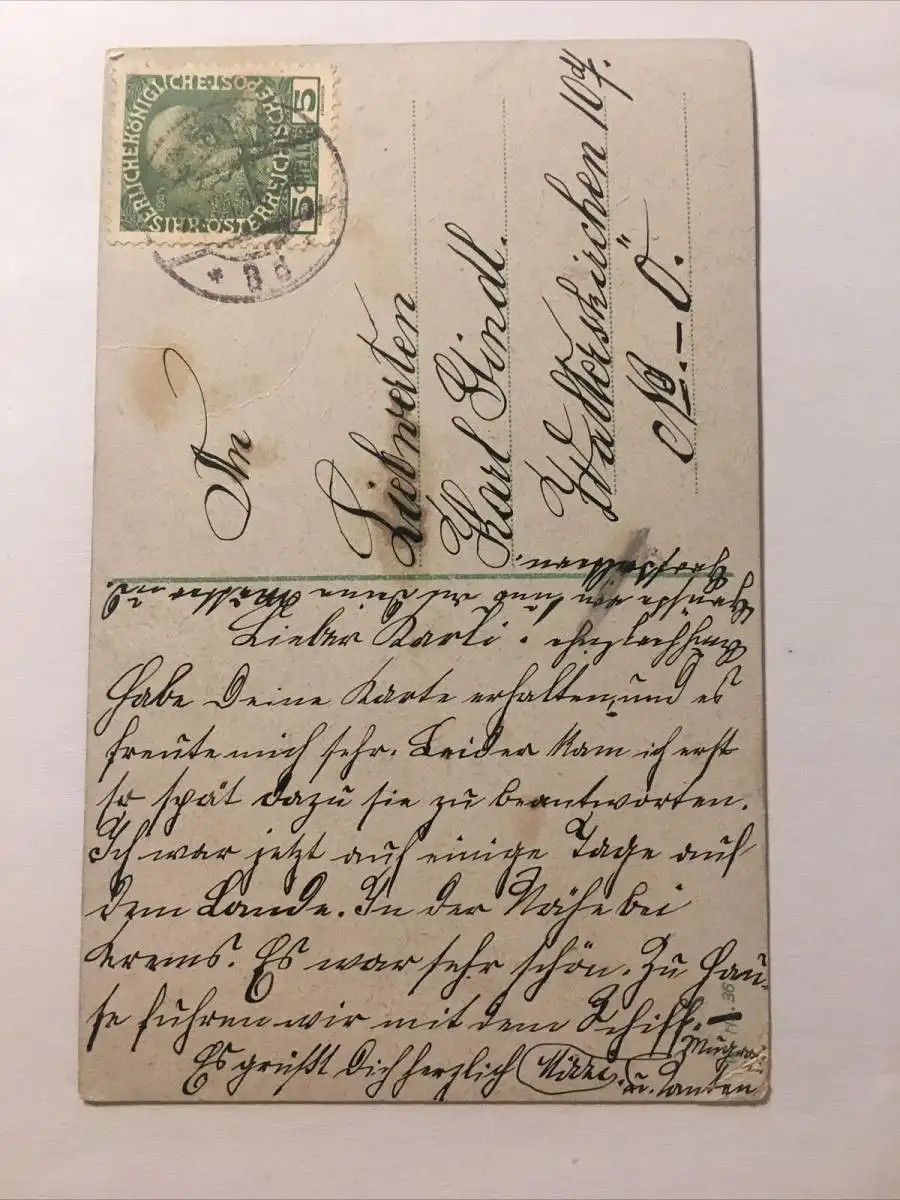 KAISERLICHEKÖNIGLICHE·POST
ÖSTERREICHISCHE
5 HELLER 5
An
Liebwerten
Karl Gindl.
Walterskirchen 104.
N.-Ö.
Lieber Karli.
Habe Deine Karte erhalten, und es
freute mich sehr. Leider kam ich erst
so spät dazu sie zu beantworten.
Ich war jetzt auf einige Tage auf
dem Lande. In der Nähe bei
Krems. Es war sehr schön. Zu Hau-
se fuhren wir mit dem Schiff.
Es grüßt Dich herzlich Mizzi
u. Tanten